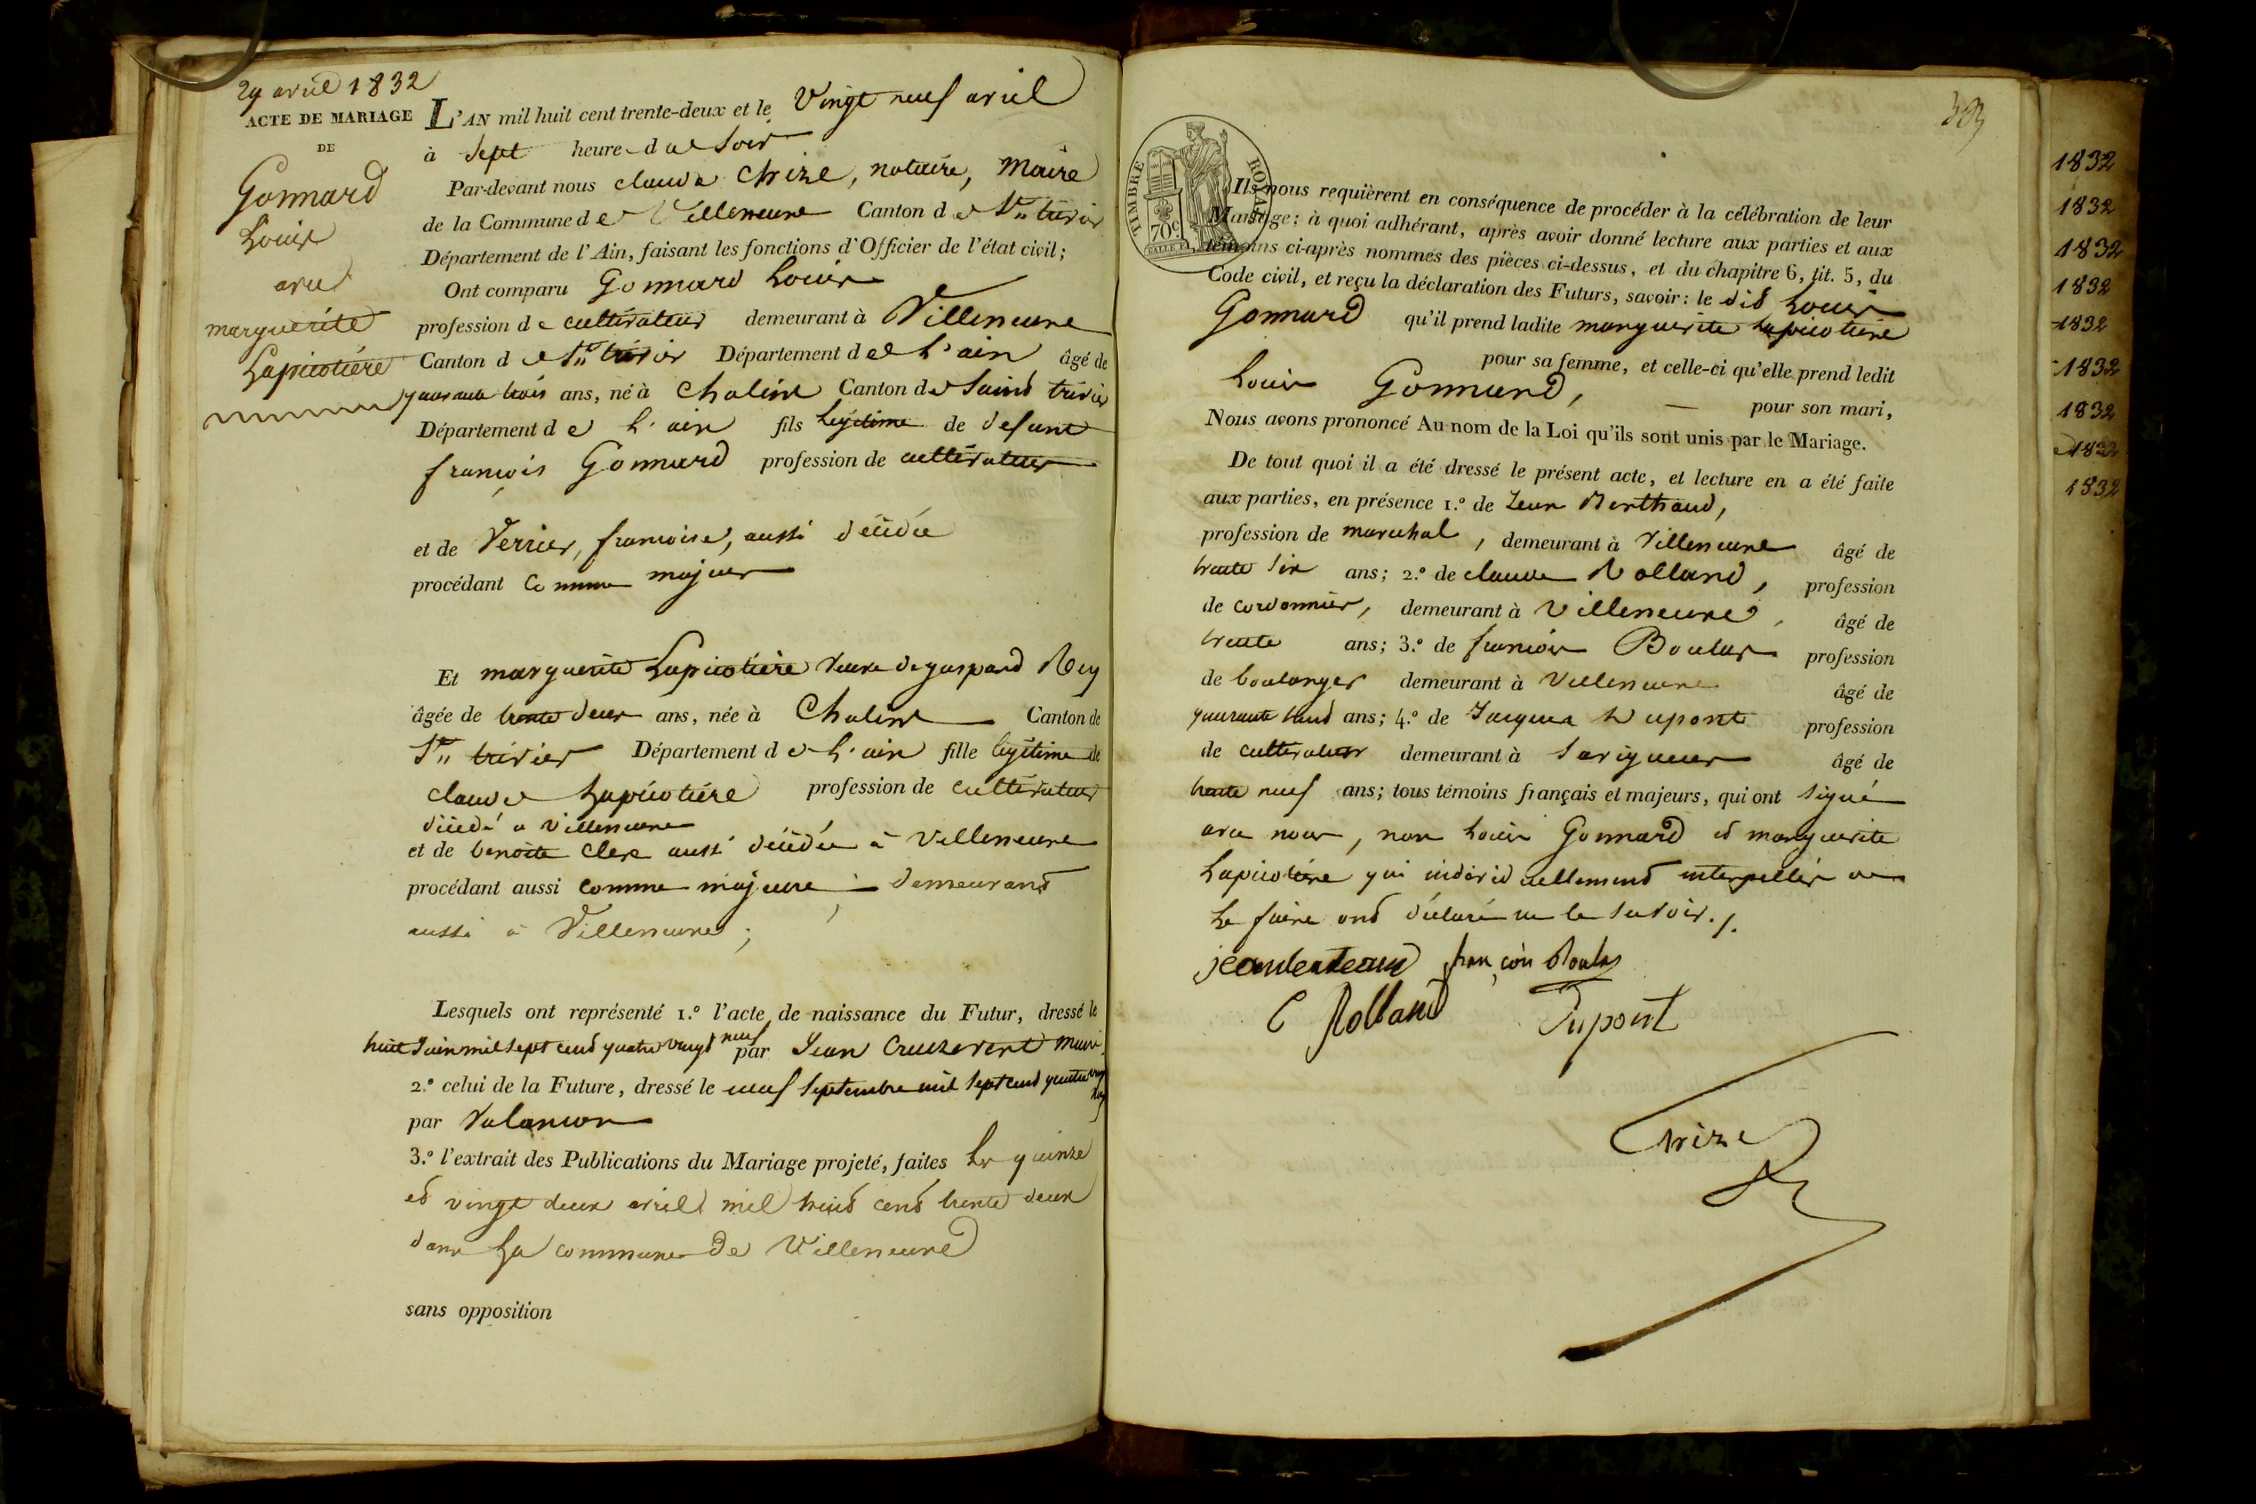 29 avril 1832
ACTE DE MARIAGE
DE
Gonnard
Louis
avec
marguerite
Lapicotière
L'AN mil huit cent trente-deux et le Vingt neuf avril
à Sept heure du Soir
Par-devant nous claude Chrize, notaire, Maire
de la Commune de Villeneuve Canton de St trivier
Département de l'Ain, faisant les fonctions d'Officier de l'état civil;
Ont comparu Gonnard Louis
profession de cultivateur demeurant à Villeneuve
Canton de St trivier Département de L'ain âgé de
quarante trois ans, né à Chaleins Canton de Saint trivier
Département de L'ain fils légitime de defunt
françois Gonnard profession de cultivateur
et de Verrier, francoise, aussi décédée
procédant Comme majeur
Et marguerite Lapicotière Veuve de gaspard Rey
âgée de trente deux ans, née à Chaleins Canton de
St trivier Département de L'ain fille légitime de
claude Lapicotière profession de cultivateur
décédé à Villeneuve
et de benoite Clerc aussi décédée à Villeneuve
procédant aussi comme majeure; demeurant
aussi à Villeneuve;
Lesquels ont représenté 1.º l'acte de naissance du Futur, dressé le
huit Juin mil sept cent quatre vingt neuf par Jean maire
2.º celui de la Future, dressé le neuf Septembre mil Sept cent quatre vingt dix
par Valancon
3.º l'extrait des Publications du Mariage projeté, faites Les quinze
et vingt deux avril mil huit cent trente deux
dans La commune De Villeneuve
sans opposition
TIMBRE ROYAL
70c
Ils nous requièrent en conséquence de procéder à la célébration de leur
Mariage; à quoi adhérant, après avoir donné lecture aux parties et aux
témoins ci-après nommés des pièces ci-dessus, et du chapitre 6, tit. 5, du
Code civil, et reçu la déclaration des Futurs, savoir: le dit Louis
Gonnard qu'il prend ladite marguerite Lapicotière
pour sa femme, et celle-ci qu'elle prend ledit
Louis Gonnard, — pour son mari,
Nous avons prononcé Au nom de la Loi qu'ils sont unis par le Mariage.
De tout quoi il a été dressé le présent acte, et lecture en a été faite
aux parties, en présence 1.º de Jean Berthaud,
profession de marechal, demeurant à Villeneuve âgé de
trente Six ans; 2.º de claude Rolland, profession
de cordonnier, demeurant à Villeneuve, âgé de
trente ans; 3.º de françois Boulas profession
de boulanger demeurant à Villeneuve âgé de
quarante ans; 4.º de Jacques Dupont profession
de cultivateur demeurant à Savigneux âgé de
trente neuf ans; tous témoins français et majeurs, qui ont signé
avec nous, non Louis Gonnard et marguerite
Lapicotière qui individuellement interpellés de
Le faire ont déclaré ne le savoir./.
françois Boulas
C Rolland Dupont
Chrize
1832
1832
1832
1832
1832
1832
1832
1832
1832